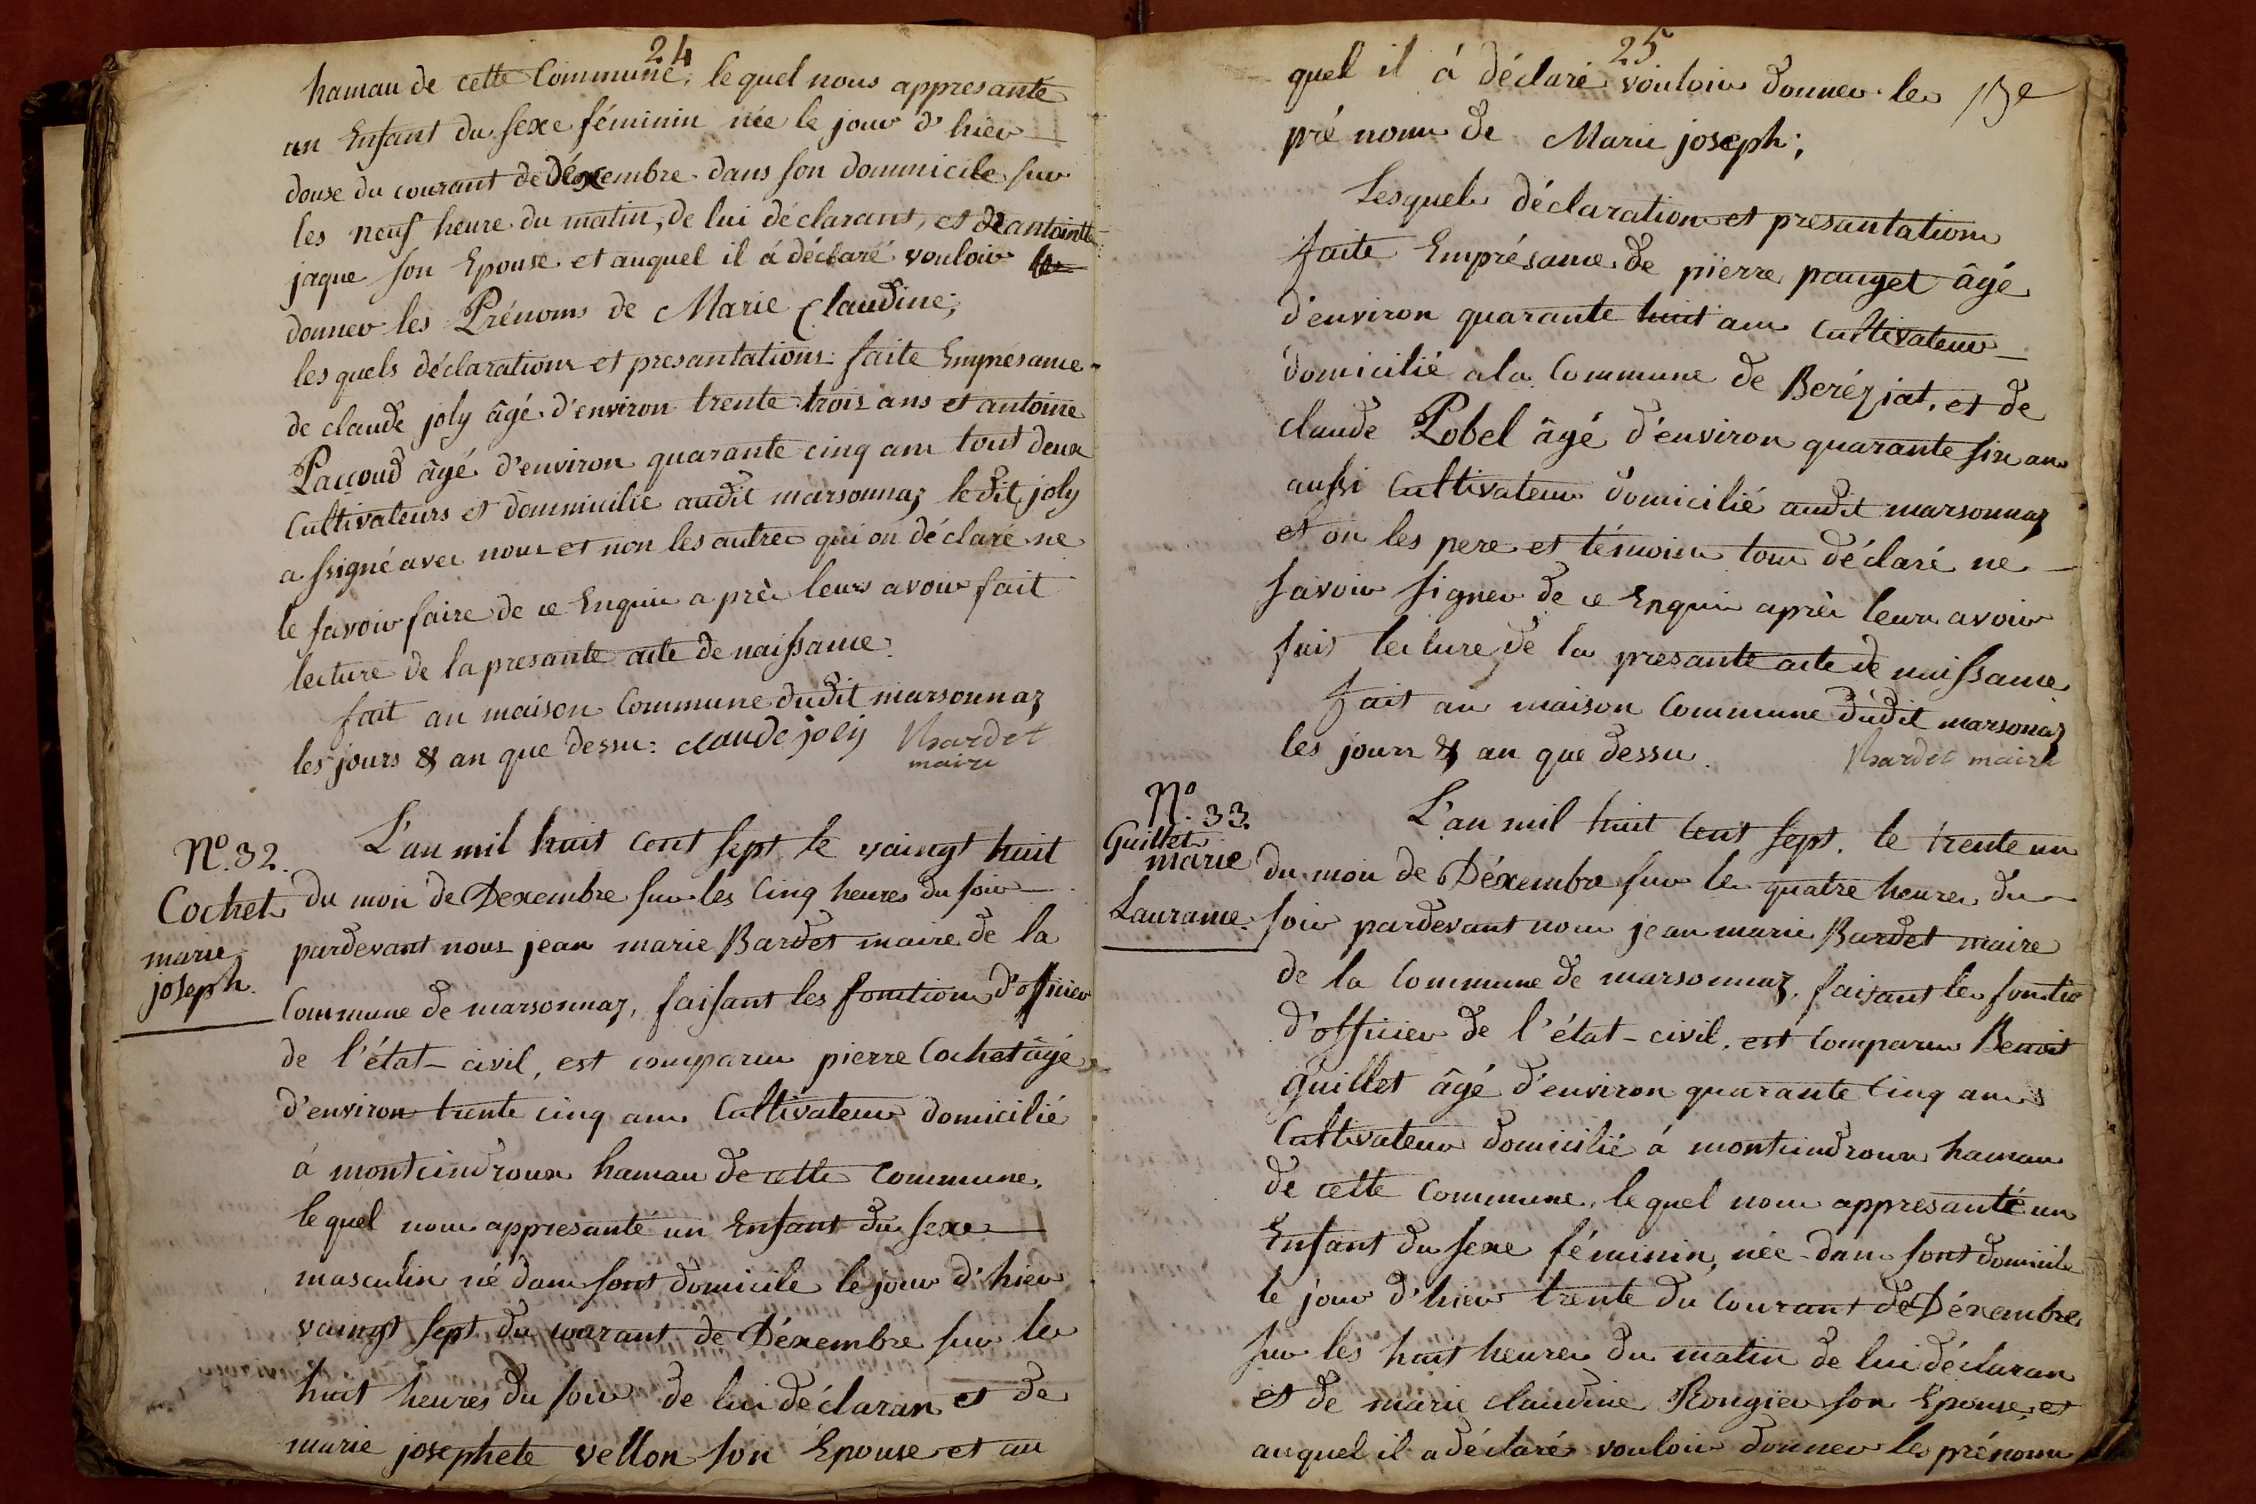 24
hamau de cette Commune, le quel nous appresante
un Enfant du sexe féminin née le jour d'hier
douse du courant de Déxembre dans son dommicile sur
les neuf heure du matin, de lui déclarant, et de antointte
jaque son Epouse et auquel il á déclaré vouloir
donner les Prénoms de Marie Claudine;
les quels déclarations et presantations faite Emprésance
de claude joly âgé d'environ trente trois ans et antoine
Pacoud âgé d'environ quarante cinq ans tout deux
Cultivateurs et dommicilié audit marsonnaz le dit joly
a ssigné avec nous et non les autres qui on déclaré ne
le savoir faire de ce Enquis après leurs avoir fait
lecture de la presante acte de naissance.
fait au maison Commune dudit marsonnaz
les jours & an que dessu: claude joly Bardet
maire
No. 32.
Cochet
marie
joseph.
L'an mil huit cent sept le vaingt huit
du mois de Dexembre sur les Cinq heures du soir
pardevant nous jean marie Bardet maire de la
Commune de marsonnaz, faisant les fonctions d'officier
de l'état-civil, est comparu pierre Cochet âgé
d'environ trente cinq ans Cultivateur domicilié
á montcindroux hamau de cette Commune,
le quel nous appresanté un Enfant du sexe
masculin né dans sont domicile le jour d'hier
vaingt sept du courant de Déxembre sur les
huit heures du soir de lui déclaran et de
marie josephete vellon son Epouse et au
25
quel il á déclaré vouloir donner les
pré noms de Marie joseph;
Lesquels déclaration et presantation
faite Emprésance de pierre pauget âgé
d'environ quarante huit ans Cultivateur
domicilié a la Commune de Beréziat, et de
claude Pobel âgé d'environ quarante six ans
aussi Cultivateur domicilié audit marsonnaz
et on les pere et témoins tous déclaré ne
savoir signer de ce Enquis après leurs avoir
fait lecture de la presante acte de naissance
fait au maison Commune dudit marsonaz
les jours & an que dessu. Bardet maire
No. 33.
Guillet
marie
Laurance.
L'an mil huit cent sept, le trente un
du mois de Déxembre sur les quatre heures du
soir pardevant nous jean marie Bardet maire
de la Commune de marsonnaz, faisant les fonctio
d'officier de l'état-civil, est Comparu Benoit
Guillet âgé d'environ quarante Cinq ans
Cultivateur domicilié á montcindroux hamau
de cette Commune, le quel nous appresanté un
Enfant du sexe féminin, née dans sont domicile
le jour d'hier trente du Courant de Déxembre
sur les huit heures du matin de lui déclaran
et de marie claudine Rongier son Epouse, et
auquel il a déclaré vouloir donner les prénoms